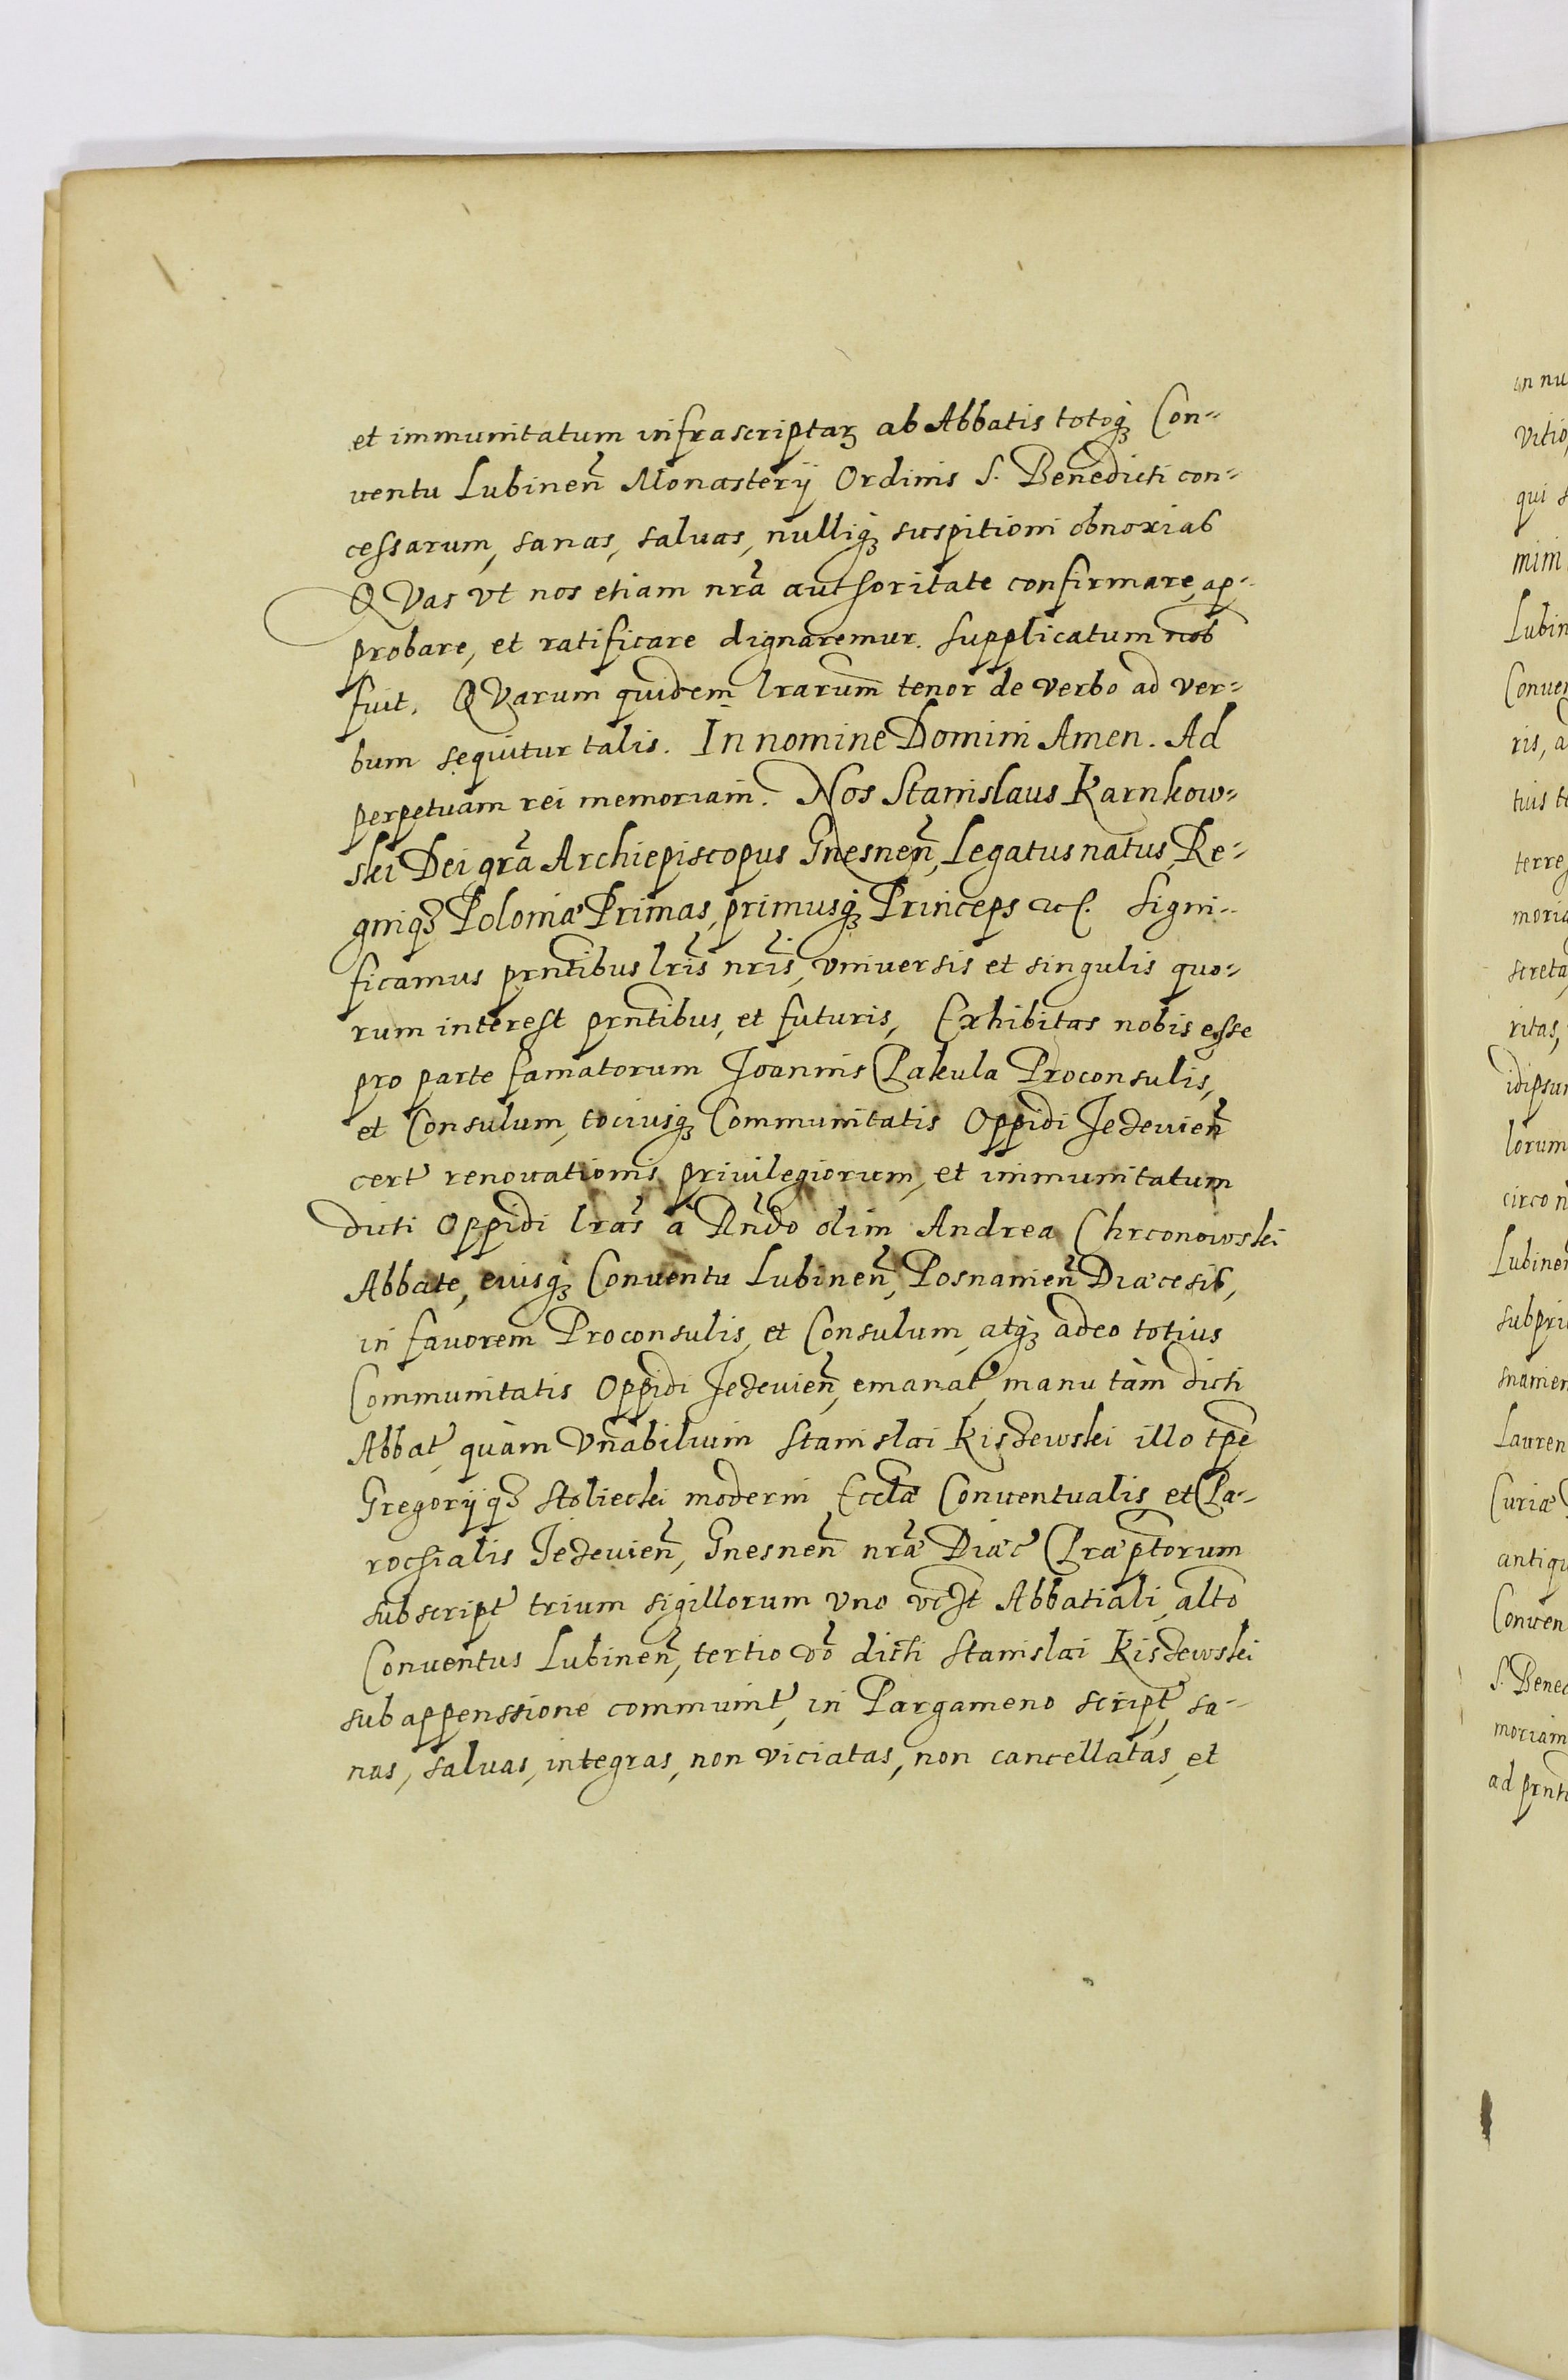 et immunitatum infrascriptaꝝ ab Abbatis totoqꝫ Con=
uentu Lubineñ Monasterij Ordinis S. Benedicti con=
cessarum, sanas, saluas, nulliqꝫ suspitioni obnoxias
QVas vt nos etiam nrã authoritate confirmare, ap=
probare, et ratificare dignaremur. supplicatum nob
fuit. QVarum quidem lrarum̃ tenor de verbo ad ver=
bum sequitur talis. In nomine Domini Amen. Ad
perpetuam rei memoriam. Nos Stanislaus Karnkow=
ski Dei grã Archiepiscopus Gnesneñ, Legatus natus, Re=
gniqꝫ Poloniæ Primas, primusqꝫ Princeps &c. Signi=
ficamus prñtibus lrĩs nrĩs, vniuersis et singulis quo=
rum interest prñtibus, et futuris, Exhibitas nobis esse
pro parte famatorum Joannis Pakula Proconsulis,
et Consulum, tociusqꝫ Communitatis Oppidi Jezeuieñ
cert renouationis priuilegiorum, et immunitatum
dicti Oppidi lrãs à Rñdo olim Andrea Chrconowski
Abbate, eiusqꝫ Conuentu Lubineñ, Posnanieñ Diæcesis,
in fauorem Proconsulis, et Consulum, atqꝫ adeo totius
Communitatis Oppidi Jezeuieñ, emanat, manu tàm dicti
Abbat, quàm Vñabilium Stanislai Kiszewski illo tpẽ
Gregorijqꝫ Stoliecki moderni Eccłæ Conuentualis et Pa=
rochialis Jezeuieñ, Gnesneñ nræ̃ Diæc Præptorum
subscript trium sigillorum vno vczt Abbatiali, altõ
Conuentus Lubineñ, tertio võ dicti Stanislai Kiszewski
sub appenssione communit, in Pargameno script, sa=
nas, saluas, integras, non viciatas, non cancellatas, et